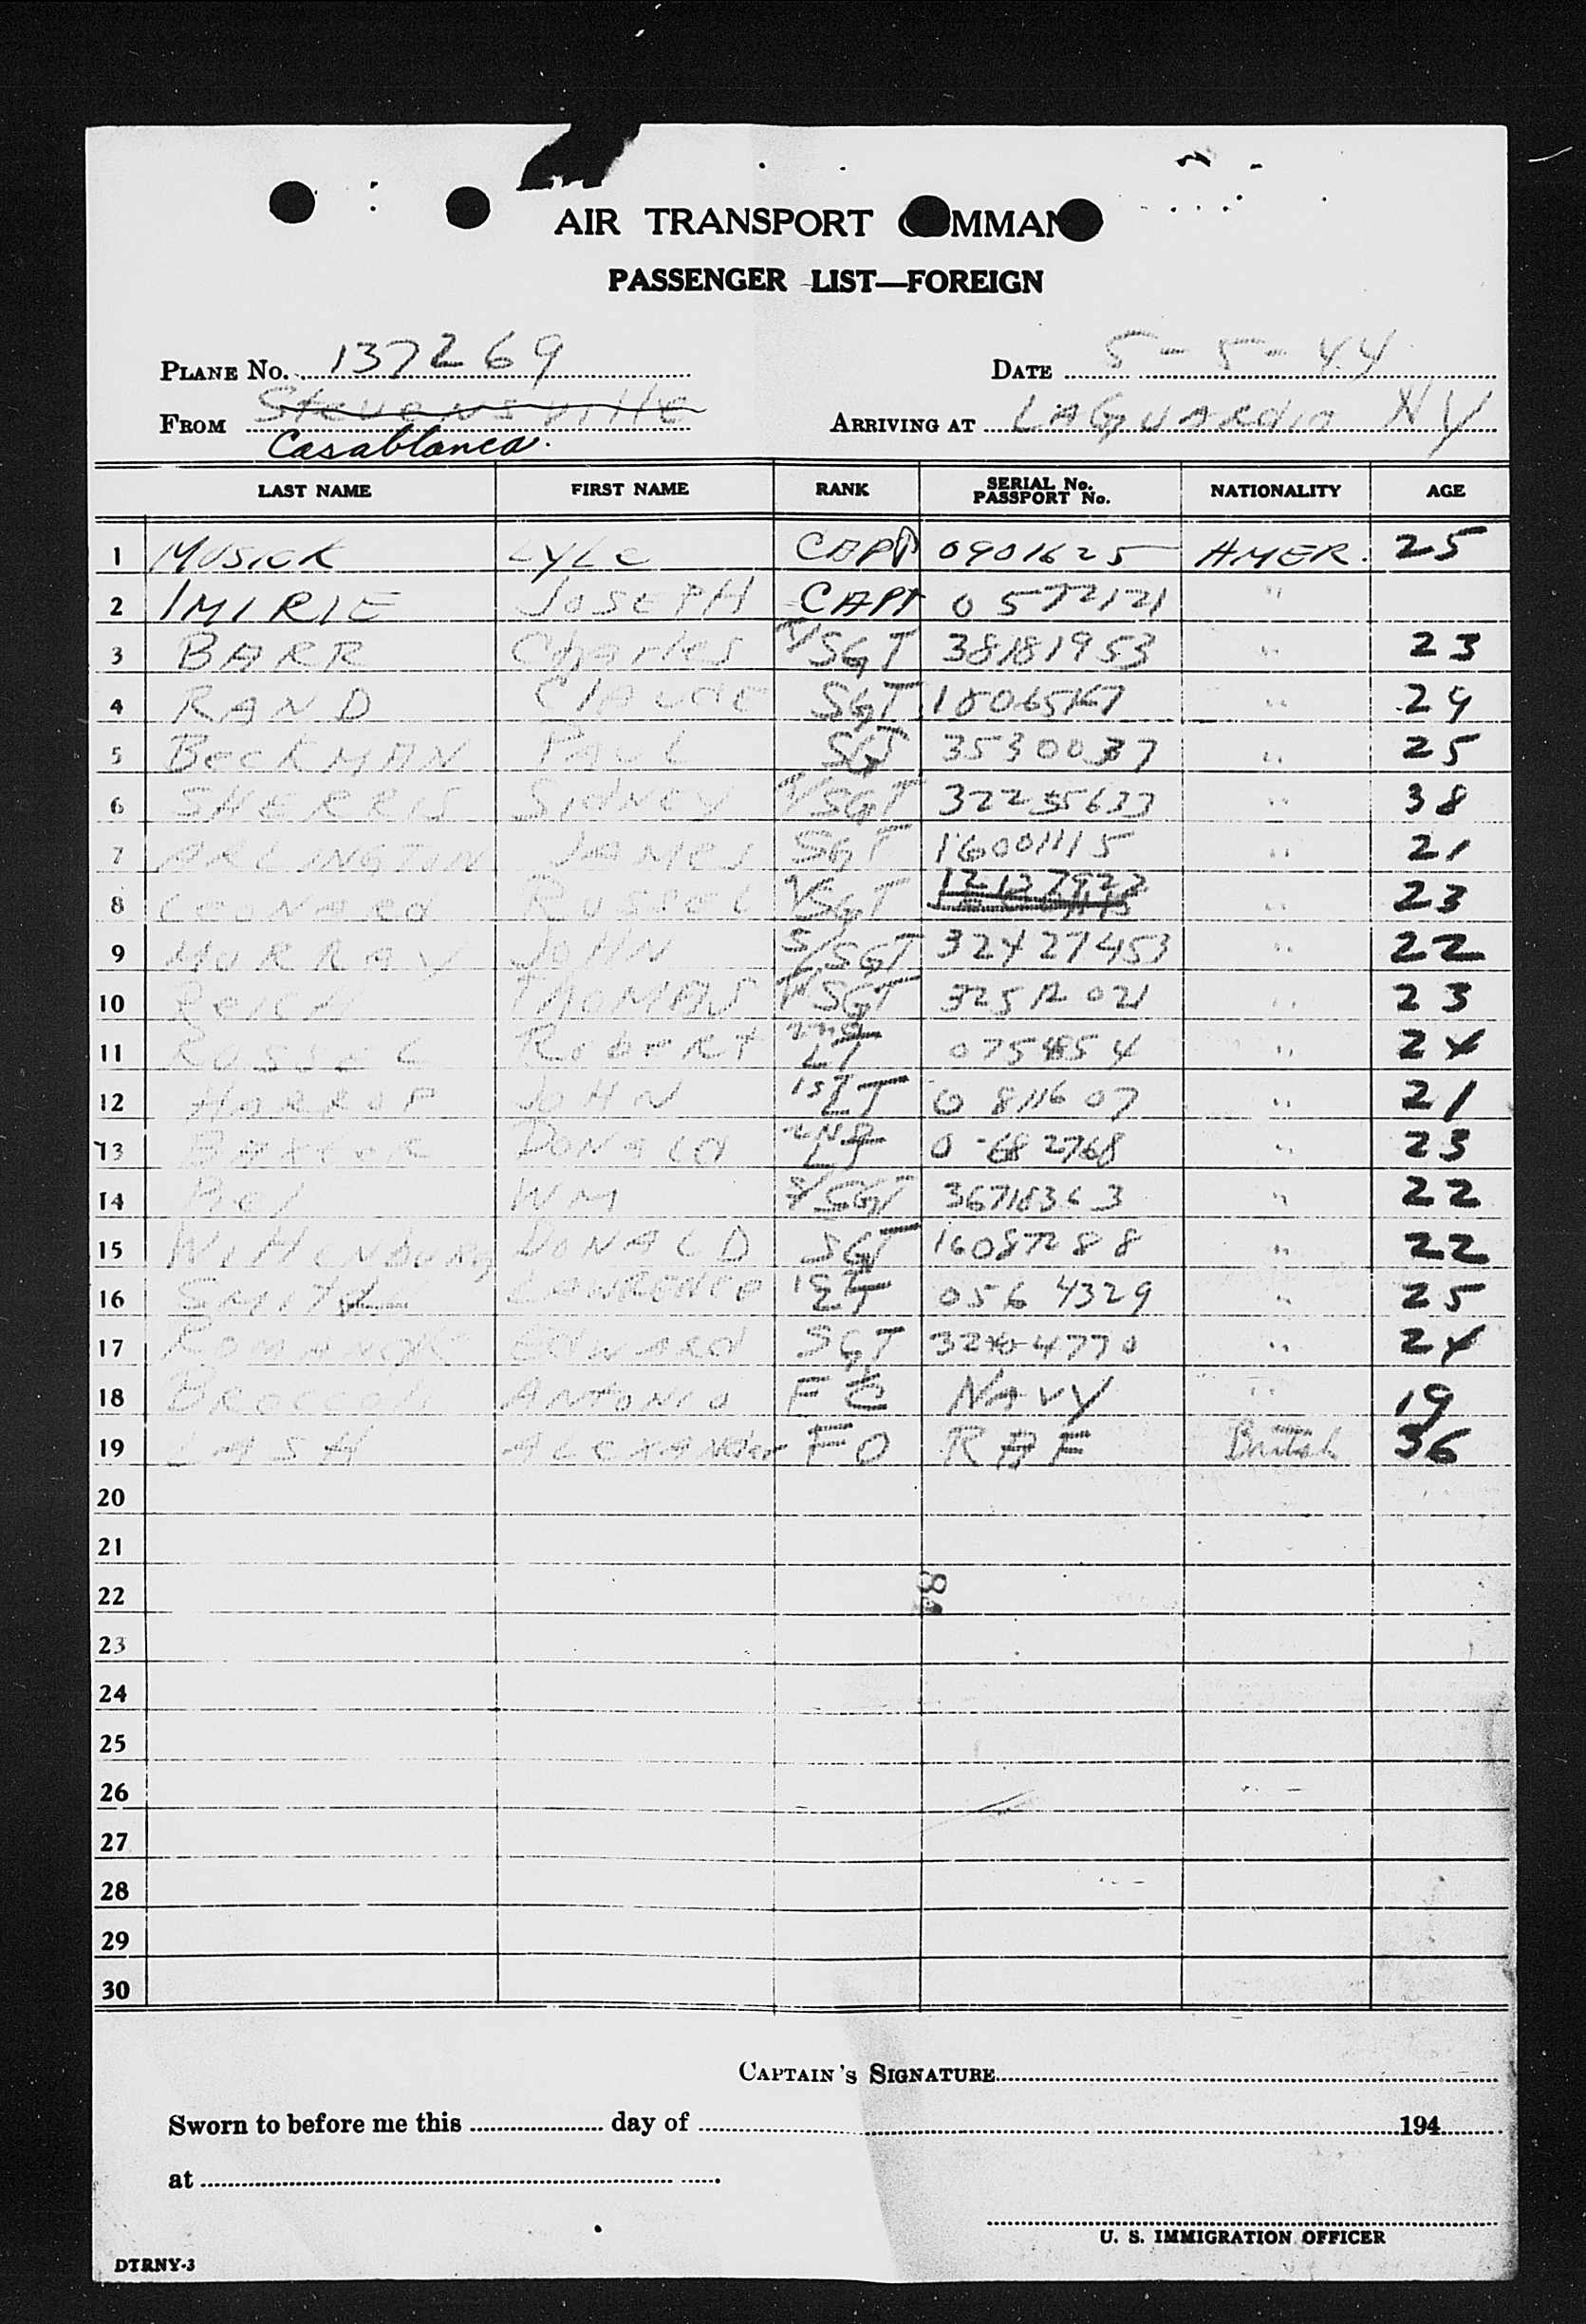 AIR TRANSPORT COMMAND
PASSENGER LIST—FOREIGN
PLANE No. 137269 DATE 5-5-44
FROM Stevensville ARRIVING AT LAGUARDIA NY
Casablanca.
LAST NAME FIRST NAME RANK SERIAL No. PASSPORT No. NATIONALITY AGE
1 MUSICK LYLE CAPT 0901625 AMER. 25
2 IMIRIE JOSEPH CAPT 0572121 "
3 BARR Charles T/SGT 38181953 " 23
4 RAND CLAUDE SGT "
5 BeckMAN PAUL SGT 3530037 " 25
6 SHERRIS SIDNEY T/SGT " 38
7 ARLINGTON JAMES SGT 16001115 " 21
8 LeONARD RUSSEL SGT 12127922 " 23
9 MURRAY JOHN S/SGT 32427453 " 22
10 THOMAS SGT 32512021 " 23
11 ROBERT 2ND LT " 24
12 JOHN 1ST LT 0811607 " 21
13 DONALD 2ND LT 0-682768 " 23
14 WM SGT " 22
15 DONALD SGT 16087288 " 22
16 SMITH LAWRENCE 1ST LT 0564329 " 25
17 EDWARD SGT " 24
18 ANTONIO FC NAVY " 19
19 LASH ALEXANder FO RAF British 36
20
21
22
23
24
25
26
27
28
29
30
CAPTAIN'S SIGNATURE
Sworn to before me this day of 194
at
U. S. IMMIGRATION OFFICER
DTRNY-3